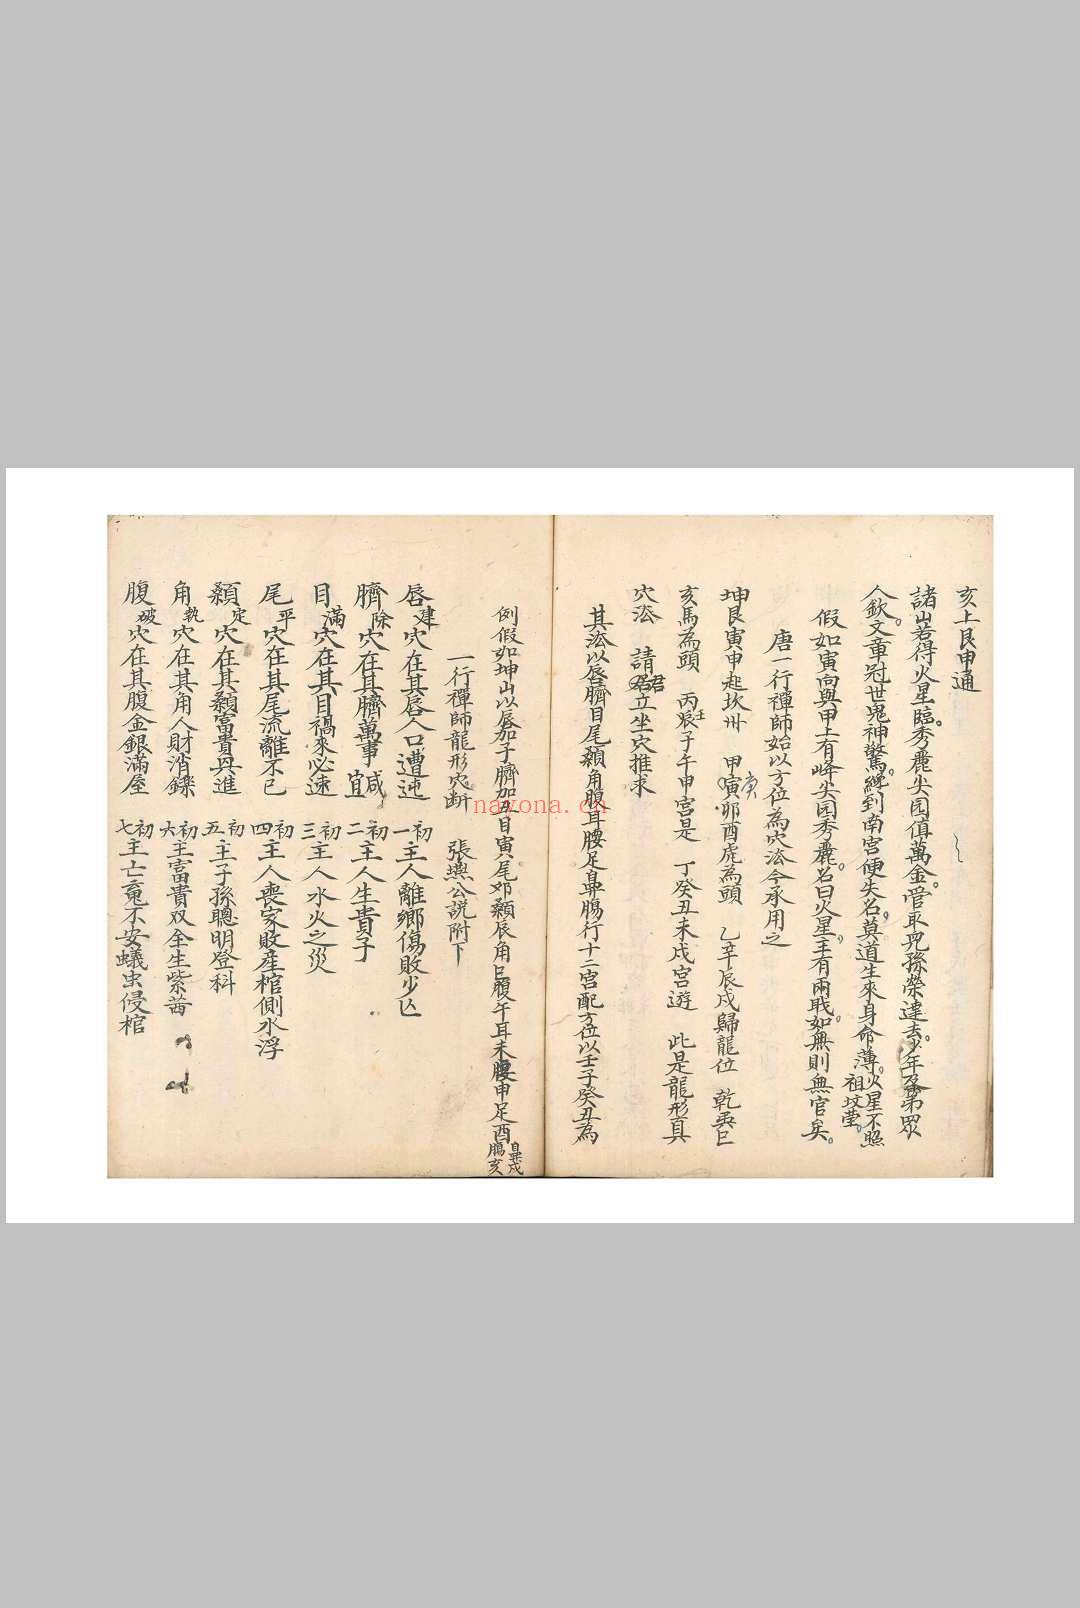 亥上艮申通
諸山若得火星臨秀麗尖园值萬金管取兒孫榮達去少年及第眾
人欽文章冠世鬼神驚縱到南宮便失名莫道生來身命薄火星不照祖坟瑩
假如寅向與甲上有峰尖园秀麗名曰火星主有兩戢如無則無官矣
唐一行禪師始以方位為穴法今承用之
坤艮寅申起坎卅 甲寅庚卯酉虎為頭 乙辛辰戌歸龍位 乾巽巳
亥馬為頭 丙壬子午申宮是 丁癸丑未戌宮遊 此是龍形真
穴法 請君立坐穴推求
其法以唇臍目尾顙角腹耳腰足鼻腸行十二宮配方位以壬子癸丑為
例假如坤山以唇加子臍加丑目寅尾卯顙辰角巳腹午耳未腰申足酉鼻戌腸亥
一行禪師龍形穴斷 張燕公說附下
唇建穴在其唇人口遭迍 初一主人離鄉傷敗少亾
臍除穴在其臍萬事咸宜 初二主人生貴子
目滿穴在其目禍來必速 初三主人水火之災
尾平穴在其尾流離不已 初四主人喪家敗產棺側水浮
顙定穴在其顙富貴與進 初五主子孫聰明登科
角執穴在其角人財消鑠 初六主富貴双全生紫茜
腹破穴在其腹金銀滿屋 初七主亡䰟不安蟻虫侵棺
nayona.cn